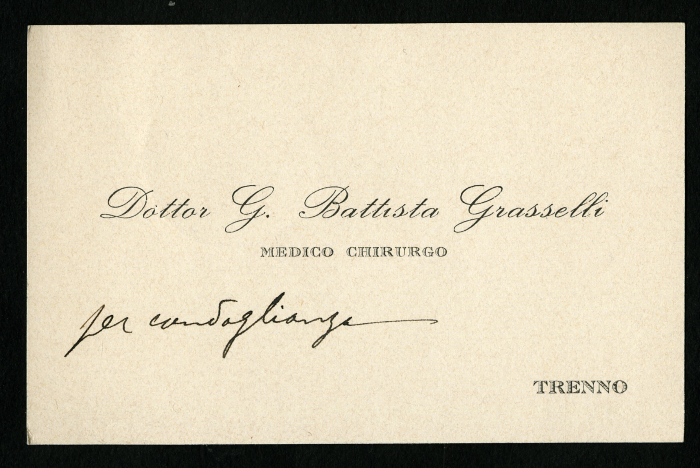 Dottor G. Battista Grasselli
MEDICO CHIRURGO
per condoglianza
TRENNO